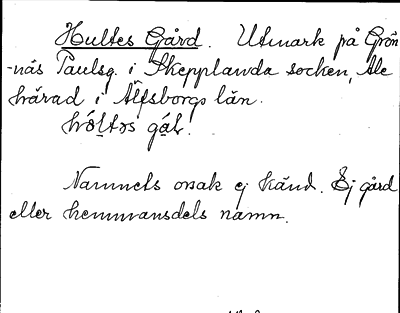 Hultes Gård. Utmark på Grön-
-näs Paulsg. i Skepplanda socken, Ale
härad i Älfsborgs län.
Namnets orsak ej känd. Ej gård
eller hemmansdels namn.